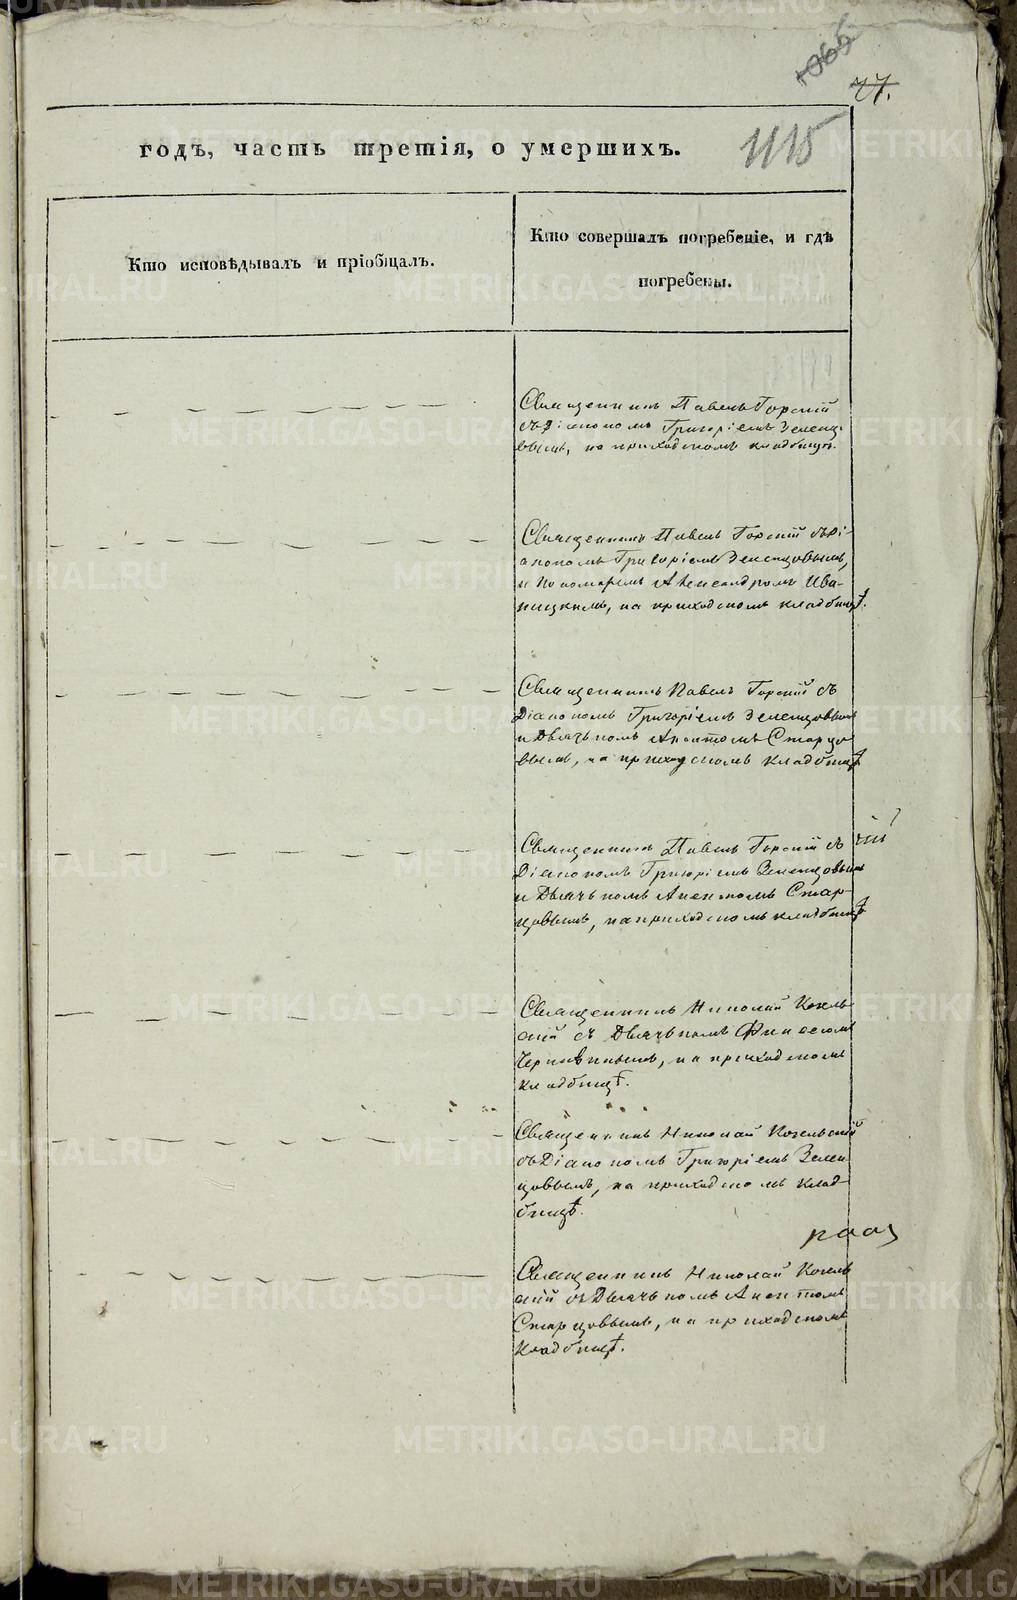 77.
1115
годъ, часть третія, о умершихъ.
Кто исповѣдывалъ и пріобщалъ.
Кто совершалъ погребеніе, и гдѣ
погребены.
Священникъ Павелъ Горскій
съ Діакономъ Григоріемъ Зеленц-
вымъ, на приходскомъ кладбищѣ.
Священникъ Павелъ Горскій съ Ді-
акономъ Григоріемъ Зеленцовымъ,
и Пономаремъ Александромъ Ива-
ницкимъ, на приходскомъ кладбищѣ.
Священникъ Павелъ Горскій съ
Діакономъ Григоріемъ Зеленцовымъ
и Дьячькомъ Старцо-
вымъ, на приходскомъ кладбищѣ
Священникъ Павелъ Горскій съ
Діакономъ Григоріемъ Зеленцовымъ
и Дьячькомъ Стар-
цовымъ, на приходскомъ кладбищѣ
Священникъ Николай Козель-
скій съ Дьячькомъ
на приходскомъ
кладбищѣ.
Священникъ Николай Козельскій
съ Діакономъ Григоріемъ Зелен-
цовымъ, на приходскомъ клад-
бищѣ.
Священникъ Николай Козель-
скій съ Дьячькомъ
Старцовымъ, на приходскомъ
кладбищѣ.
METRIKI.GASO-URAL.RU